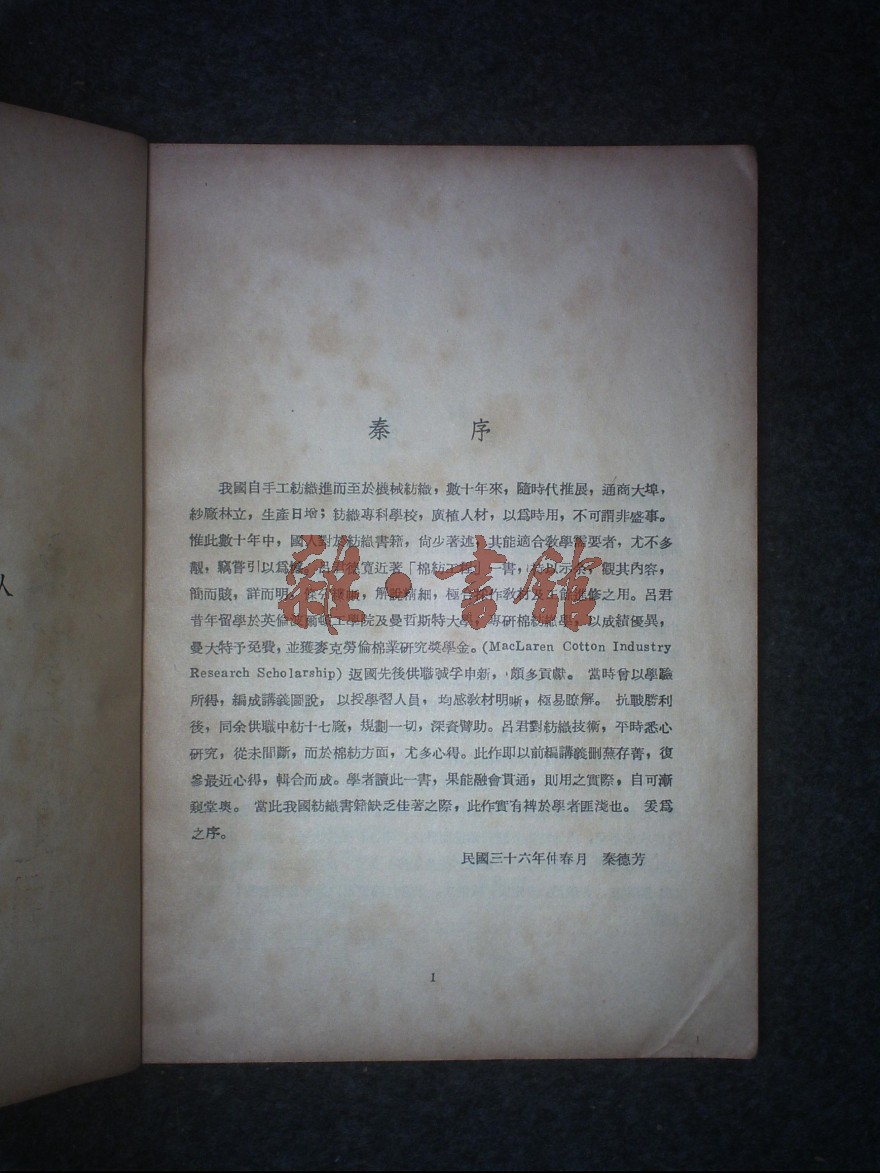 人
秦 序
我國自手工紡織進而至於機械紡織，數十年來，隨時代推展，通商大埠，
紗廠林立，生產日增；紡織專科學校，廣植人材，以爲時用，不可謂非盛事。
惟此數十年中，國人對於紡織書籍，尙少著述，其能適合敎學需要者，尤不多
覯，竊嘗引以爲憾。呂君德寬近著「棉紡工程」一書，持以示余，觀其內容，
簡而賅，詳而明，條分縷晰，解說精細，極合作敎材及工餘進修之用。呂君
昔年留學於英倫波爾頓工學院及曼哲斯特大學，專研棉紡織學，以成績優異，
曼大特予免費，並獲麥克勞倫棉業研究獎學金。(MacLaren Cotton Industry
Research Scholarship) 返國先後供職誠孚申新，頗多貢獻。 當時曾以學驗
所得，編成講義圖說，以授學習人員，均感敎材明晰，極易瞭解。 抗戰勝利
後，同余供職中紡十七廠，規劃一切，深資臂助。呂君對紡織技術，平時悉心
研究，從未間斷，而於棉紡方面，尤多心得。此作即以前編講義刪蕪存菁，復
參最近心得，輯合而成。學者讀此一書，果能融會貫通，則用之實際，自可漸
窺堂奧。 當此我國紡織書籍缺乏佳著之際，此作實有裨於學者匪淺也。 爰爲
之序。
民國三十六年仲春月 秦德芳
雜·書館
1